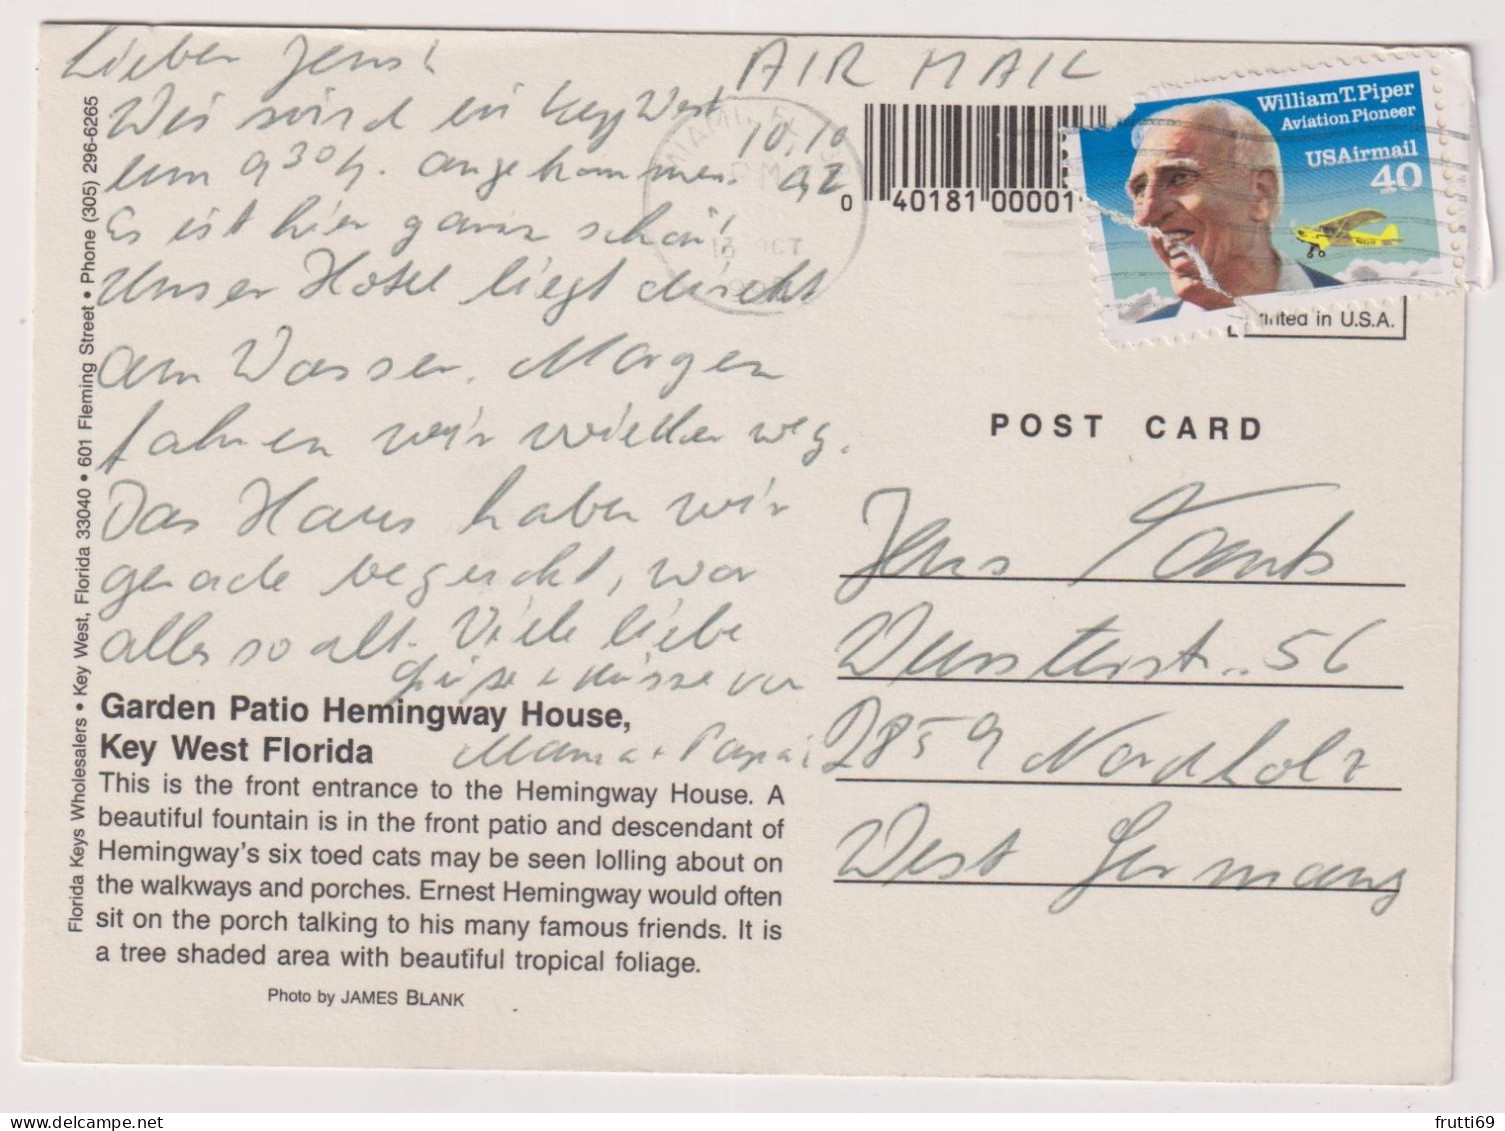 Lieber Jens!
AIR MAIL
Wir sind in Key West
10.10
um 9 30 h. angekommen.
92
Es ist hier ganz schön!
Unser Hotel liegt direkt
am Wasser. Morgen
fahren wir wieder weg.
Das Haus haben wir
gerade besucht, war
alles so alt. Viele liebe
Grüße + Küsse von
Mama + Papa!
Garden Patio Hemingway House,
Key West Florida
This is the front entrance to the Hemingway House. A
beautiful fountain is in the front patio and descendant of
Hemingway's six toed cats may be seen lolling about on
the walkways and porches. Ernest Hemingway would often
sit on the porch talking to his many famous friends. It is
a tree shaded area with beautiful tropical foliage.
Photo by JAMES BLANK
Florida Keys Wholesalers • Key West, Florida 33040 • 601 Fleming Street • Phone (305) 296-6265
MIAMI, FL
PM
13 OCT
0 40181 00001
William T. Piper
Aviation Pioneer
USAirmail
40
Printed in U.S.A.
POST CARD
Jens
56
2859 Nordholz
West Germany
frutti69